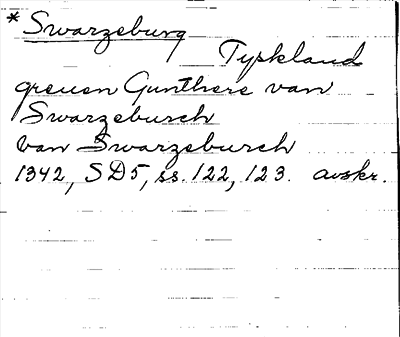 * Swarzeburg
Tyskland
greuen Gunthere van
Swarzeburch
van Swarzeburch
1342, SD5, ss. 122, 123. avskr.